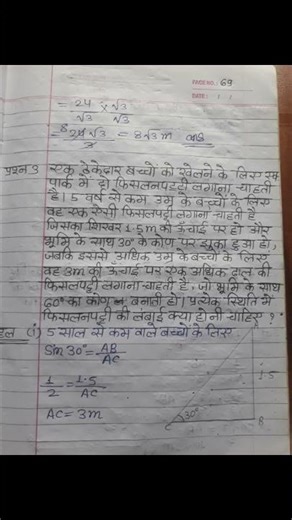 PAGE NO.: 69
DATE: / /
= 24 × √3
√3 √3
= 24√3 = 8√3m ans
3
प्रश्न3 एक ठेकेदार बच्चों को खेलने के लिए एक
पार्क में दो फिसलनपट्टी लगाना चाहती
है। 5 वर्ष से कम उम्र के बच्चों के लिए
वह एक ऐसी फिसलपट्टी लगाना चाहती है
जिसका शिखर 1.5m की ऊँचाई पर हो और
भूमि के साथ 30° के कोण पर झुका हुआ हो,
जबकि इससे अधिक उम्र के बच्चों के लिए
वह 3m की ऊँचाई पर एक अधिक ढाल की
फिसलपट्टी लगाना चाहती है, जो भूमि के साथ
60° का कोण बनाती हो। प्रत्येक स्थिति में
फिसलनपट्टी की लंबाई क्या होनी चाहिए?
हल (i) 5 साल से कम वाले बच्चों के लिए
Sin 30° = AB
AC
1 = 1.5
2 AC
AC = 3m
1.5
30°
B